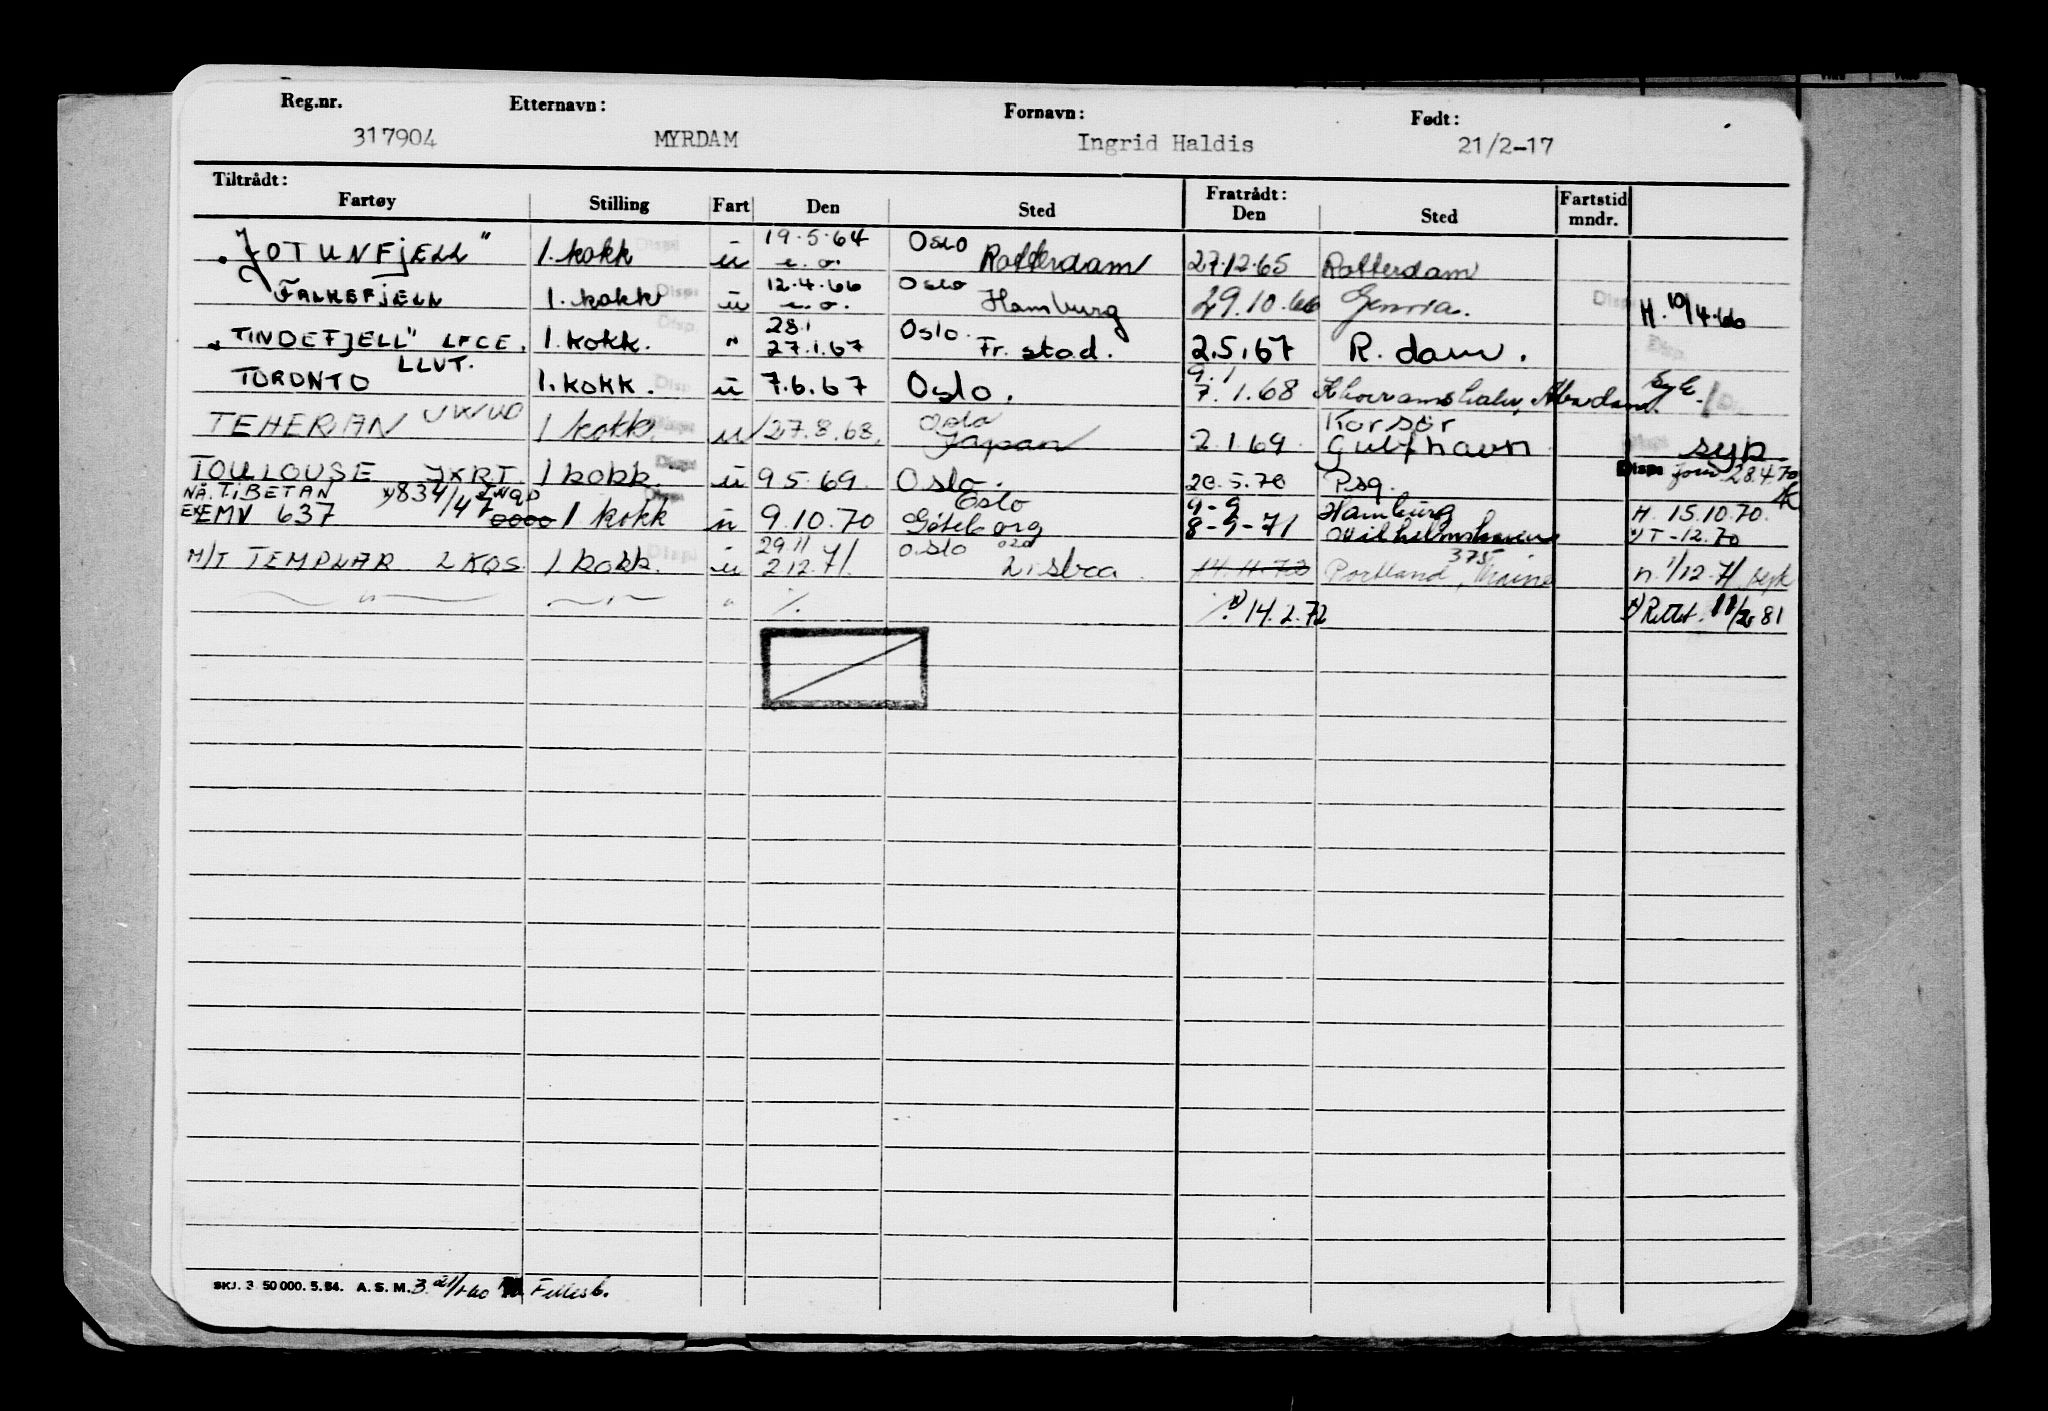 Reg.nr. Etternavn: Fornavn: Født:
317904 MYRDAM Ingrid Haldis 21/2-17
Tiltrådt: Fratrådt:
Fartøy Stilling Fart Den Sted Den Sted Fartstid mndr.
19.5.64 Oslo
"JOTUNFJELL" 1. kokk u e.o. Rotterdam 27.12.65 Rotterdam
12.4.66 Oslo
FALKEFJELL 1. kokk u e.o. Hamburg 29.10.66 Genova. H. 10/4.66
28.1 Oslo.
"TINDEFJELL" LFCE. 1. kokk. " 27.1.67 Fr. stad. 2.5.67 R. dam.
LLVT. 9.1
TORONTO 1. kokk. u 7.6.67 Oslo. 7.1.68 Khorramshahr, Abadan.
Oslo Korsör
TEHERAN 1 kokk. u 27.8.68. Japan 2.1.69 Gulfhavn syk.
TOULOUSE JXRT 1 kokk. u 9.5.69. Oslo. 20.5.70 Psg. Disp. 28.4.70
NÅ. TIBETAN 834/47 Oslo 9-9 Hamburg
EX EMV 637 1 kokk u 9.10.70 Göteborg 8-9-71 Wilhelmshaven H. 15.10.70.
T-12.70
29.11 Oslo
M/T TEMPLAR LKQS 1 kokk. u 2.12.71. Lisboa. 14.11.72 Portland, Maine n. 1/12.71
375
" " " ./. ./. x) 14.2.72 x) Rettet. 11/2-81
SKJ. 3 50 000. 5. 64. A. S. M.